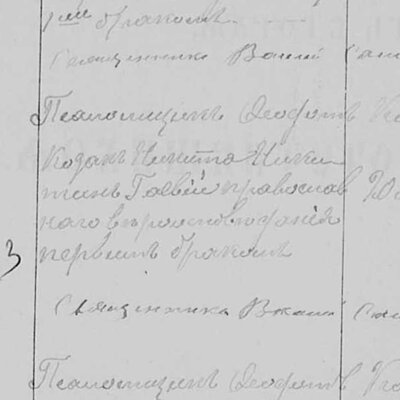 рымъ бракомъ.
Священникъ Василій
Псаломщикъ Ѳеофитъ
Козакъ Никита Ники
тинъ Гаевій православ
наго вѣроисповѣданія
первымъ бракомъ
3
Священникъ Василій
Псаломщикъ Ѳеофитъ